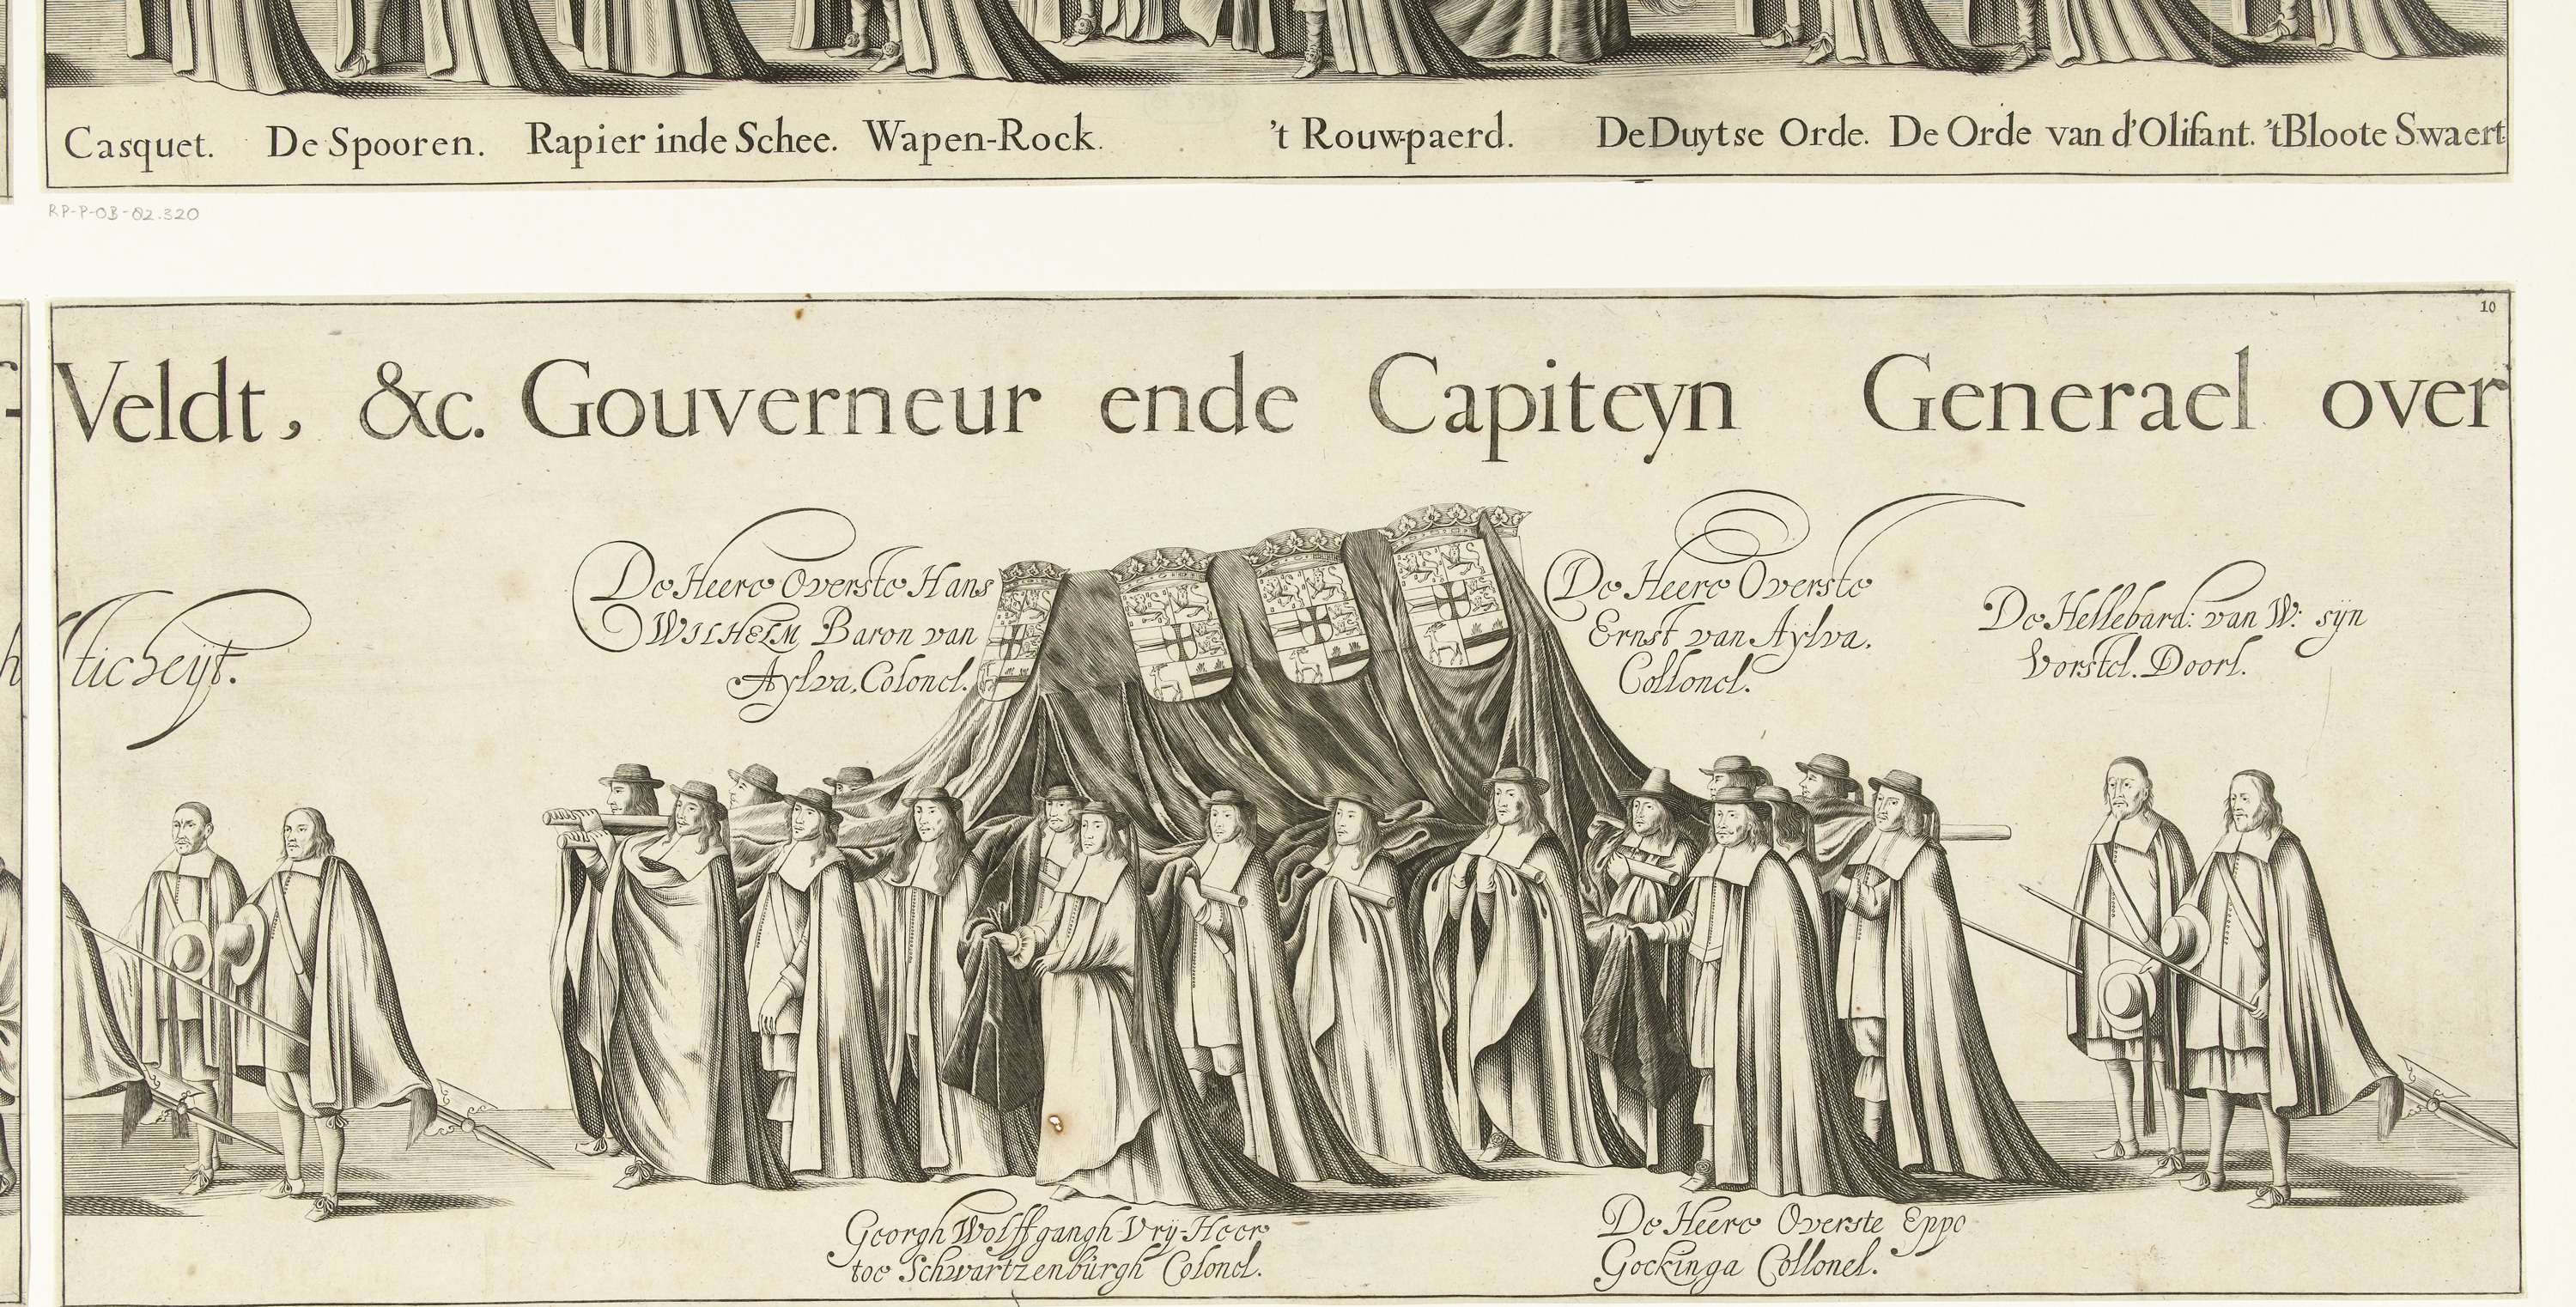 Casquet. De Spooren. Rapier inde Schee. Wapen-Rock. 't Rouw-paerd. De Duytse Orde. De Orde van d'Olifant. 't Bloote Swaert
RP-P-OB-82.320
10
Veldt, &c. Gouverneur ende Capiteyn Generael over
ticheijt.
De Heere Overste Hans
WILHELM Baron van
Aylva. Colonel.
De Heere Overste
Ernst van Aylva.
Collonel.
De Hellebard: van W: sijn
Vorstel. Doorl.
Georgh Wolffgangh Vrij-Heer
toe Schwartzenbürgh Colonel.
De Heere Overste Eppo
Gockinga Collonel.